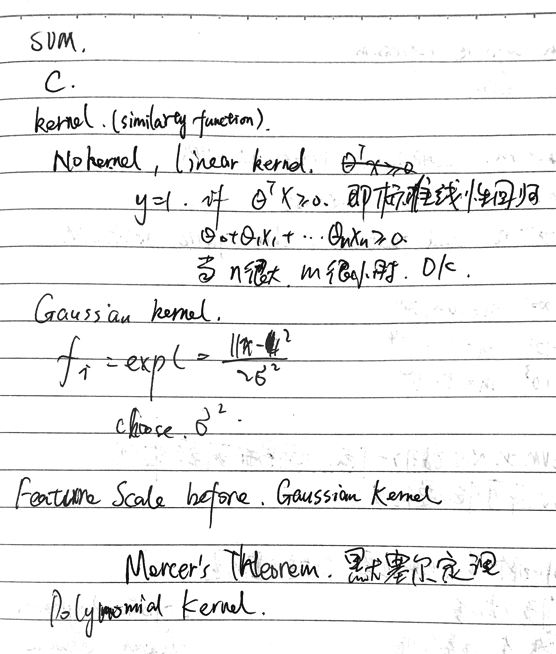 SVM.
C.
kernel. (similarty function).
No kernel, linear kernel. θᵀx≥0
y=1. 时 θᵀX≥0. 即标准线性回归
θ₀+θ₁x₁+…θₙxₙ≥0.
当 n很大, m很小时. OK.
Gaussian kernel.
f₁ = exp(- ||x-l||²/2σ²
choose. σ².
Feature Scale before. Gaussian Kernel
Mercer's Theorem. 默塞尔定理
Polynomial Kernel.